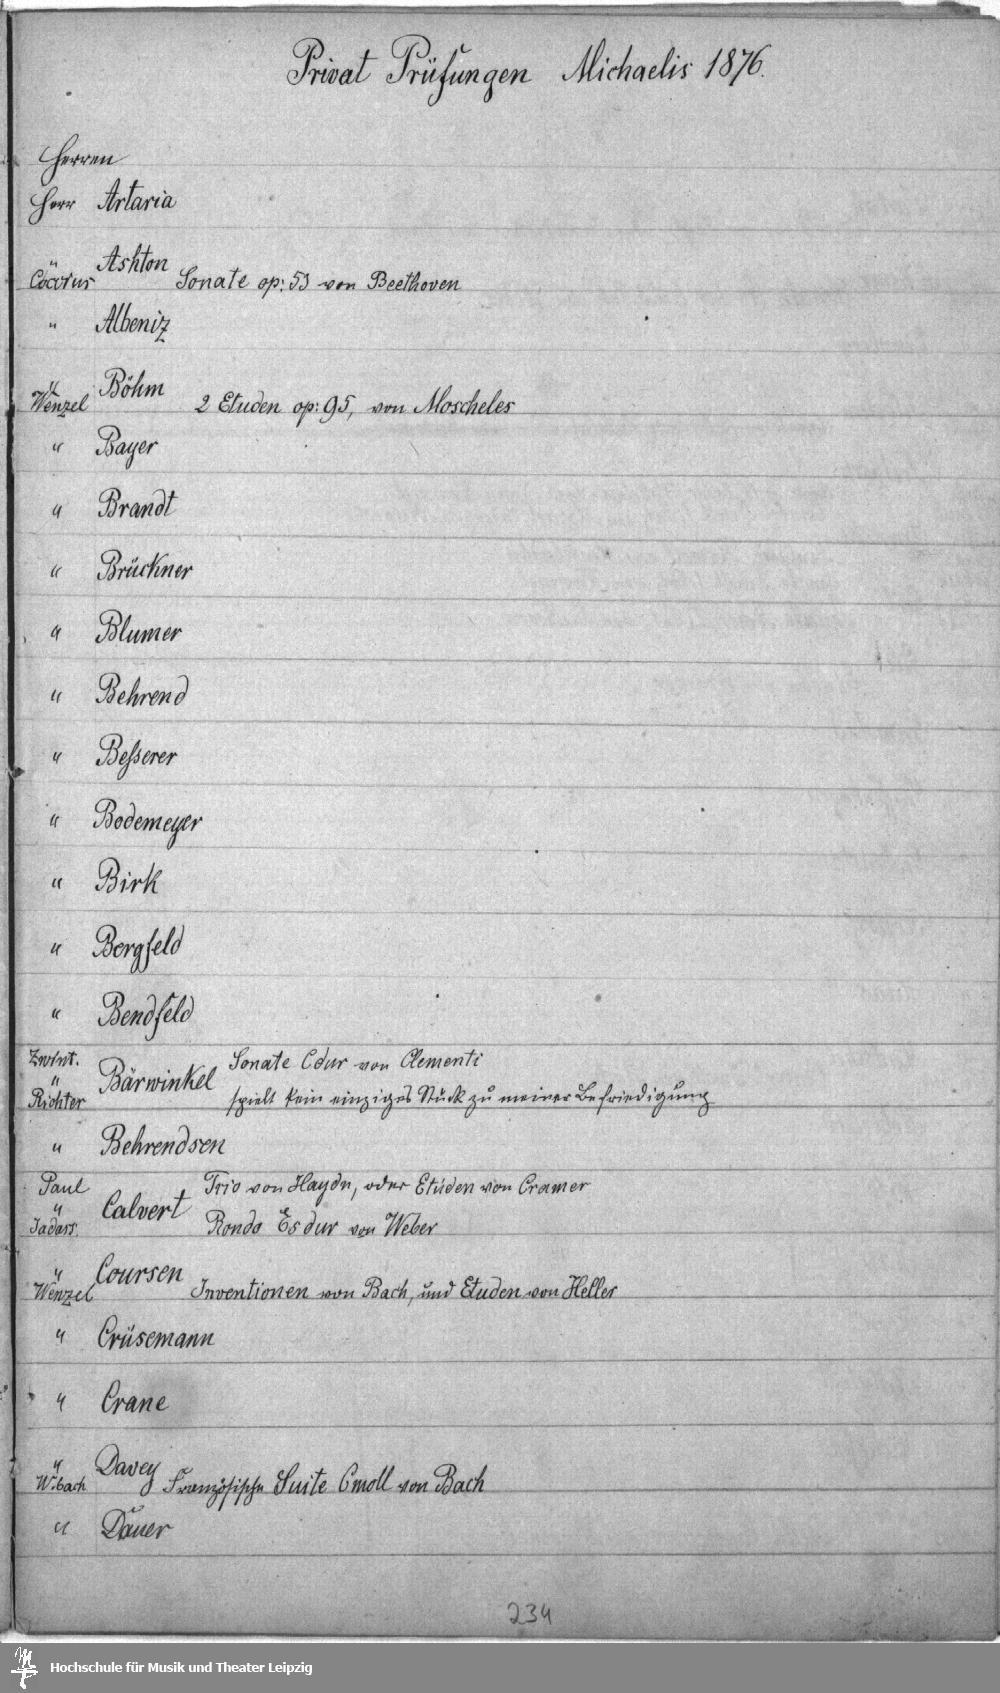 Privat Prüfungen Michaelis 1876.
Herren
Herr Artaria
" Ashton
Coccius Sonate op: 53 von Beethoven
" Albeniz
" Böhm
Wenzel 2 Etuden op: 95, von Moscheles
" Bayer
" Brandt
" Brückner
" Blumer
" Behrend
" Besserer
" Bodemeyer
" Birk
" Bergfeld
" Bendfeld
Zwint. Sonate Cdur von Clementi
" Bärwinkel
Richter spielt kein einziges Stück zu meiner Befriedigung
" Behrendsen
Paul Trio von Haydn, oder Etuden von Cramer
" Calvert
Jadass. Rondo Es dur von Weber
" Coursen
Wenzel Inventionen von Bach, und Etuden von Heller
" Crüsemann
" Crane
" Davey
W.bach Französische Suite Cmoll von Bach
" Dauer
234
Hochschule für Musik und Theater Leipzig